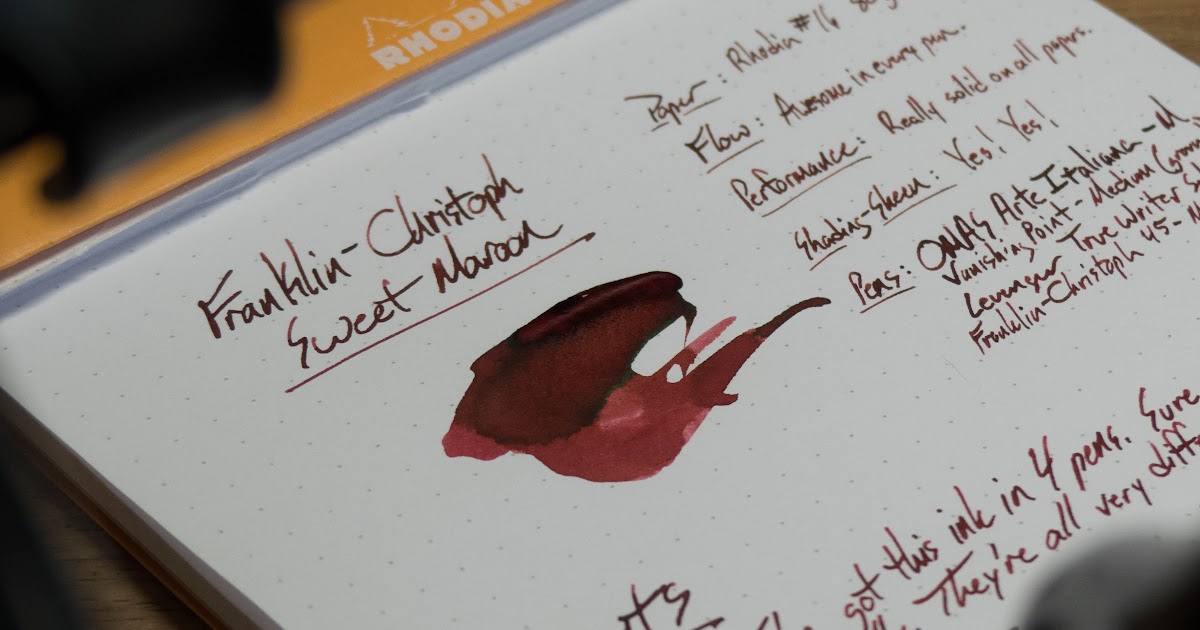 RHODIA
Franklin-Christoph
Sweet Maroon
Paper: Rhodia #16 80g
Flow: Awesome in every pen.
Performance: Really solid on all papers.
Shading-Sheen: Yes! Yes!
Pens: OMAS Arte Italiana-M
Vanishing Point-Medium
Levenger True Writer
Franklin-Christoph 45-
got this ink in 4 pens. Sure
They're all very